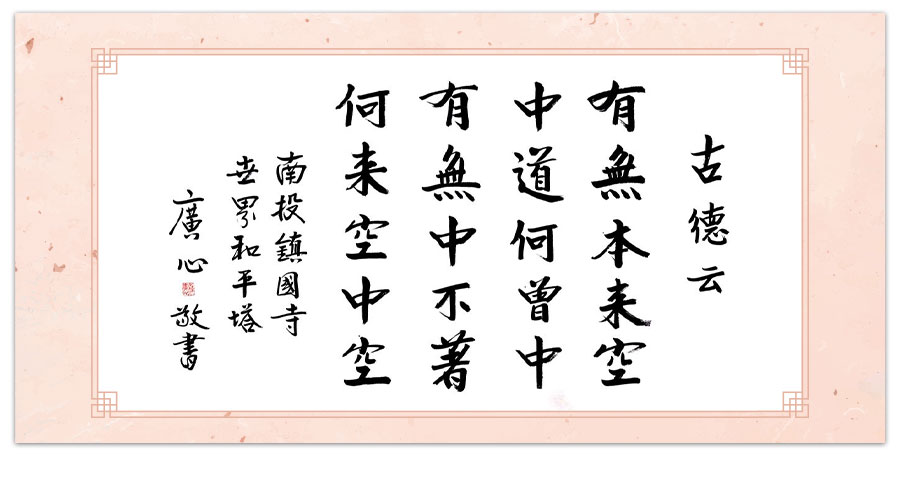 古德云
有無本来空
中道何曾中
有無中不著
何来空中空
南投鎮國寺
世界和平塔
廣心敬書